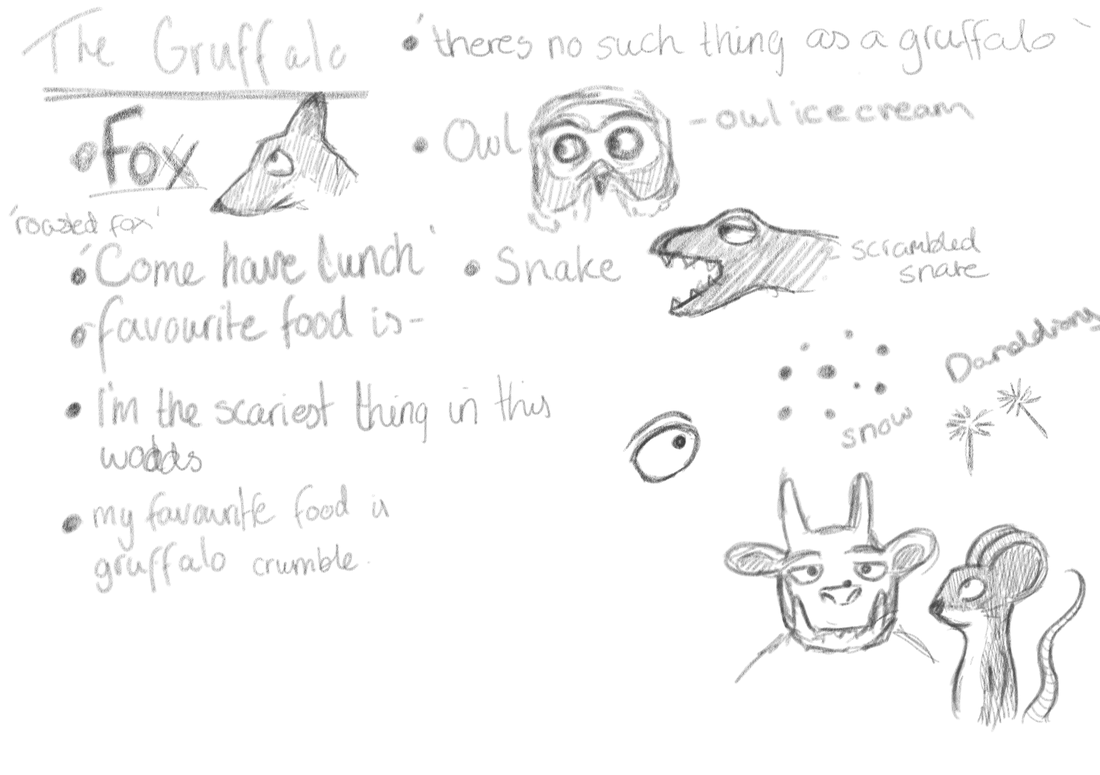 The Gruffalo
• 'theres no such thing as a gruffalo'
• Fox
'roasted fox'
• Owl
- owl icecream
• 'Come have lunch'
• Snake
scrambled
snake
• favourite food is -
• I'm the scariest thing in this
woods
• my favourite food is
gruffalo crumble.
snow